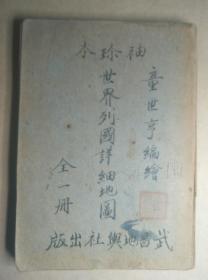 袖珍本
童世亨編繪
世界列國詳細地圖
全一册
武昌地輿社出版